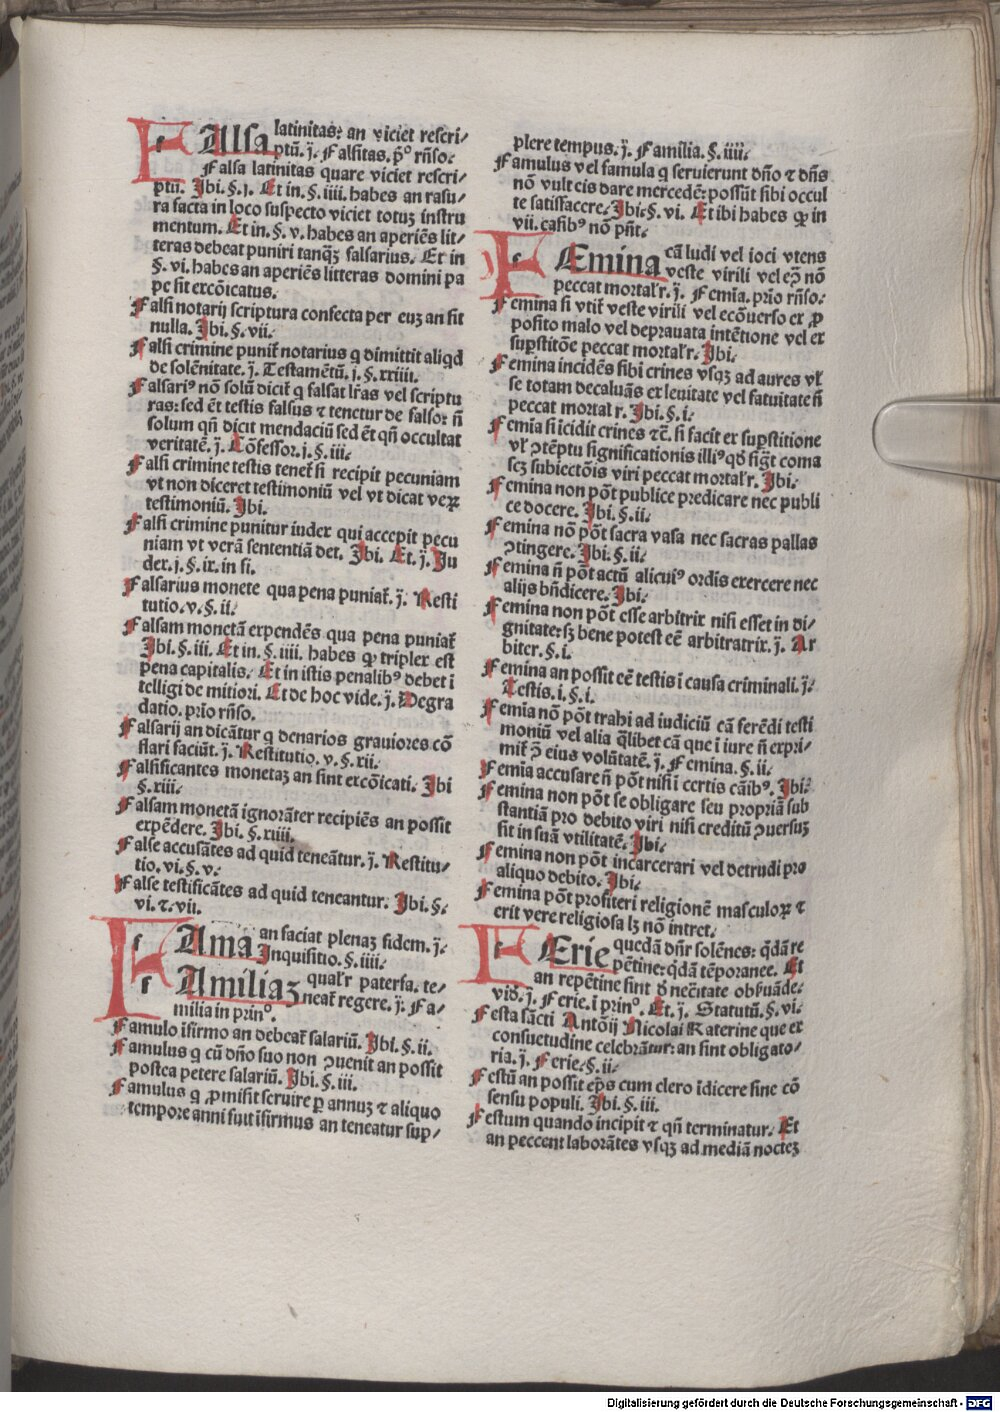 FAlsa latinitas: an viciet rescri/
ptū. j̈. Falsitas. p̄º rn̄so.
Falsa latinitas quare viciet rescri/
ptū. Ibi. §. j. Et in. §. iiii. habes an rasu/
ra facta in loco suspecto viciet totuꝫ instru
mentum. Et in. §. v. habes an aperiēs lit/
teras debeat puniri tanqꝫ falsarius. Et in
§. vi. habes an aperiēs litteras domini pa
pe sit excōicatus.
Falsi notarij scriptura confecta per euꝫ an sit
nulla. Ibi. §. vii.
Falsi crimine punit᷑ notarius q dimittit aliqd
de solēnitate. j̈. Testamētū. j. §. xxiiii.
Falsariꝰ nō solū dicit᷑ q falsat lr̄as vel scriptu
ras: sed ēt testis falsus ⁊ tenetur de falso: n̄
solum qn̄ dicit mendaciū sed ēt qn̄ occultat
veritatē. j̈. Cōfessor. j. §. iii.
Falsi crimine testis tenet᷑ si recipit pecuniam
vt non diceret testimoniū vel vt dicat veꝝ
testimoniū. Ibi.
Falsi crimine punitur iudex qui accepit pecu
niam vt verā sententiā det. Ibi. Et. j̈. Iu
dex. j. §. ix. in fi.
Falsarius monete qua pena puniat᷑. j̈. Resti
tutio. v. §. ii.
Falsam monetā expendēs qua pena puniat᷑
Ibi. §. iii. Et in. §. iiii. habes ꝙ triplex est
pena capitalis. Et in istis penalibꝰ debet ī
telligi de mitiori. Et de hoc vide. j̈. Degra
datio. prio rn̄so.
Falsarij an dicātur q denarios grauiores cō
flari faciūt. j̈. Restitutio. v. §. xii.
Falsificantes monetaꝫ an sint excōicati. Ibi
§. xiii.
Falsam monetā ignorāter recipiēs an possit
expēdere. Ibi. §. xiiii.
False accusātes ad quid teneātur. j̈. Restitu/
tio. vi. §. v.
False testificātes ad quid teneantur. Ibi. §.
vi. ⁊. vii.
FAma an faciat plenaꝫ fidem. j̈.
Inquisitio. §. iiii.
FAmiliaꝫ qual'r paterfa. te/
neat᷑ regere. j̈. Fa/
milia in prinº.
Famulo īfirmo an debeat᷑ salariū. Ibi. §. ii.
Famulus q cū dn̄o suo non ꝯuenit an possit
postea petere salariū. Ibi. §. iii.
Famulus q ꝓmisit seruire ꝑ annuꝫ ⁊ aliquo
tempore anni fuit īfirmus an teneatur sup/
plere tempus. j̈. Familia. §. iiii.
Famulus vel famula q seruierunt dn̄o ⁊ dn̄s
nō vult eis dare mercedē: possūt sibi occul
te satisfacere. Ibi. §. vi. Et ibi habes ꝙ in
vii. casibꝰ nō pn̄t.
FEmina cā ludi vel ioci vtens
veste virili vel eꝯ nō
peccat mortal'r. j̈. Femīa. prio rn̄so.
Femina si vtit᷑ veste virili vel ecōuerso ex ꝓ
posito malo vel deprauata intētione vel ex
suꝑstitōe peccat mortal'r. Ibi.
Femina incidēs sibi crines vsqꝫ ad aures vl'
se totam decaluās ex leuitate vel fatuitate n̄
peccat mortal'r. Ibi. §. i.
Femīa si īcidit crines ⁊c̄. si facit ex suꝑstitione
vl' ꝯtēptu significationis illiꝰ qd̄ sigt̄ coma
scꝫ subiectōis viri peccat mortal'r. Ibi.
Femina non pōt publice predicare nec publi
ce docere. Ibi. §. ii.
Femina nō pōt sacra vasa nec sacras pallas
ꝯtingere. Ibi. §. ii.
Femina n̄ pōt actū alicuiꝰ ordīs exercere nec
alijs bn̄dicere. Ibi.
Femina non pōt esse arbitrix nisi esset in di/
gnitate: sꝫ bene potest eē arbitratrix. j̈. Ar
biter. §. i.
Femina an possit eē testis ī causa criminali. j̈.
Testis. i. §. i.
Femīa nō pōt trahi ad iudiciū cā ferēdi testi
moniū vel alia q̄libet cā que ī iure n̄ expri/
mit᷑ ꝯ̄ eius volūtatē. j̈. Femina. §. ii.
Femīa accusare n̄ pōt nisi ī certis cāibꝰ. Ibi.
Femina non pōt se obligare seu propriā sub
stantiā pro debito viri nisi creditū ꝯuersuꝫ
sit in suā vtilitatē. Ibi.
Femina non pōt incarcerari vel detrudi pro
aliquo debito. Ibi.
Femina pōt profiteri religionē masculoꝝ ⁊
erit vere religiosa lꝫ nō intret.
FErie quedā dn̄r solēnes: q̄dā re
pētine: q̄dā tēporanee. Et
an repētine sint d' nec̄itate obs̄uāde.
vid'. j̈. Ferie. ī prinº. Et. j̈. Statutū. §. vi.
Festa sācti Antōij Nicolai Katerine que ex
consuetudine celebrātur: an sint obligato/
ria. j̈. Ferie. §. ii.
Festū an possit ep̄s cum clero īdicere sine cō
sensu populi. Ibi. §. iii.
Festum quando incipit ⁊ qn̄ terminatur. Et
an peccent laborātes vsqꝫ ad mediā nocteꝫ
Digitalisierung gefördert durch die Deutsche Forschungsgemeinschaft - DFG